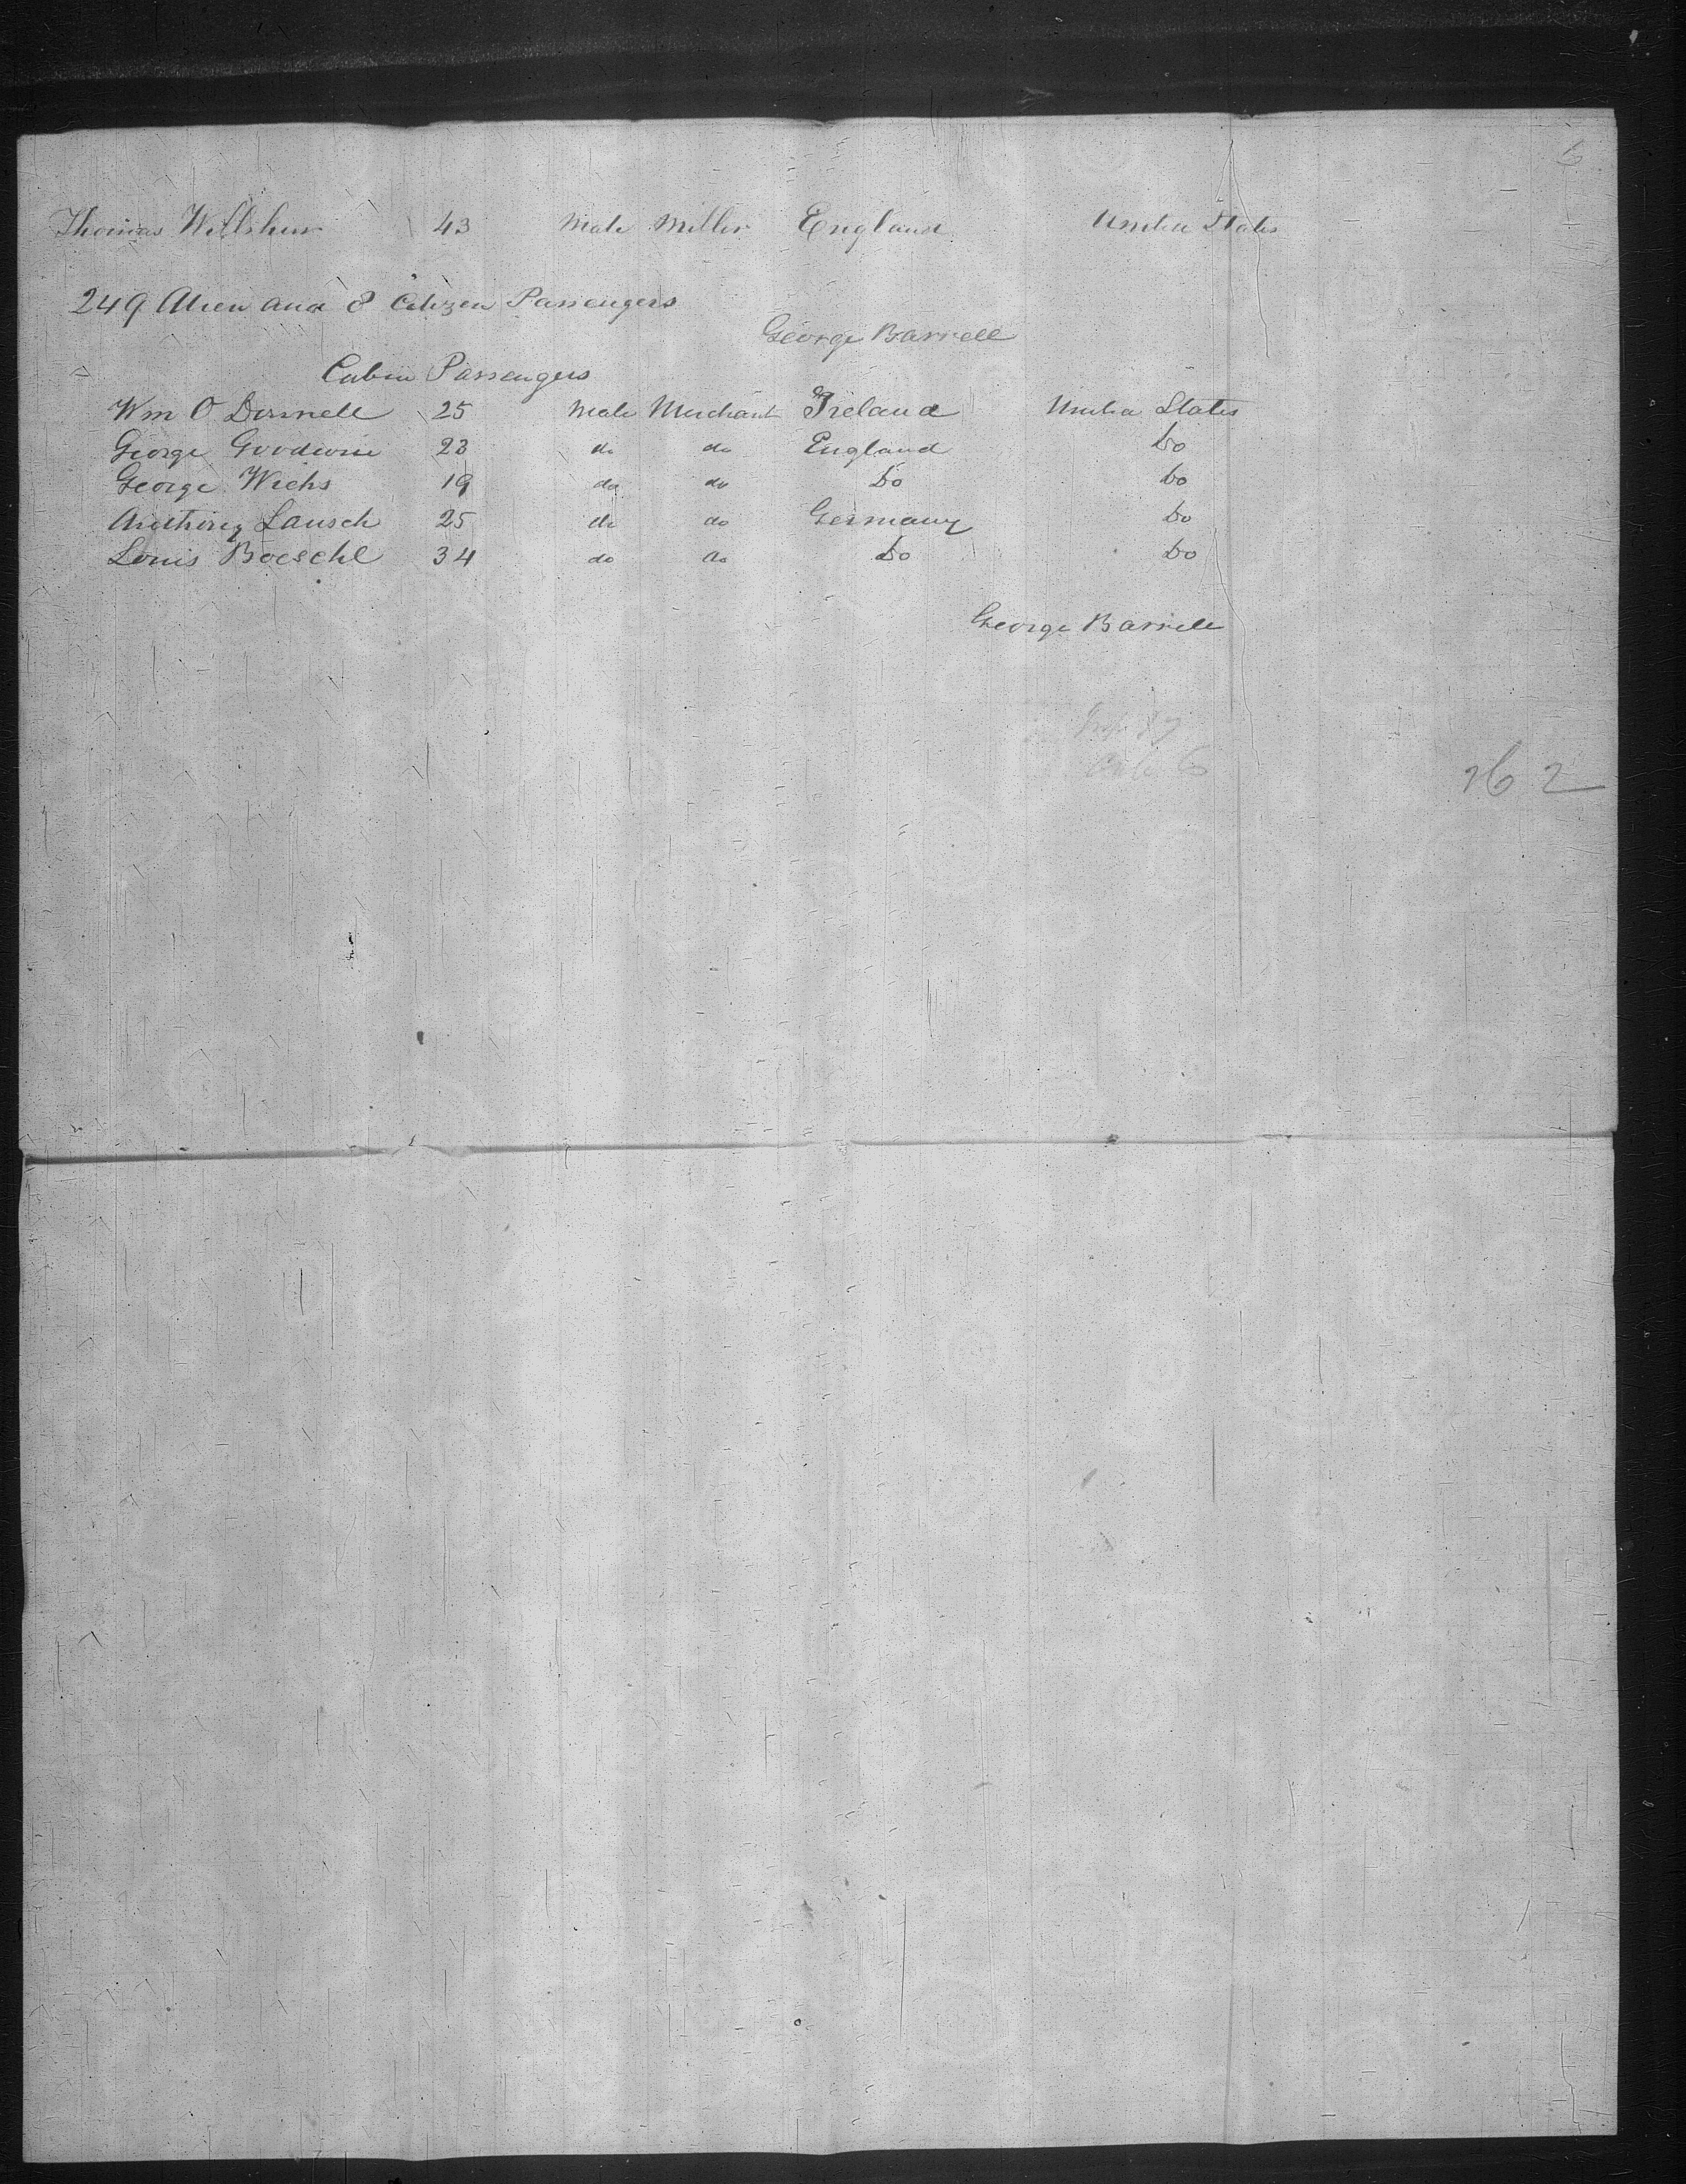 6
Thomas Willshur 43 Male Miller England United States
249 Alien and 8 Citizen Passengers
George Barrell
Cabin Passengers
Wm O Donnell 25 Male Merchant Ireland United States
George Goodwin 23 do do England Do
George Wichs 19 do do Do Do
Anthony Lausch 25 do do Germany Do
Louis Boeschl 34 do do Do Do
George Barrell
262